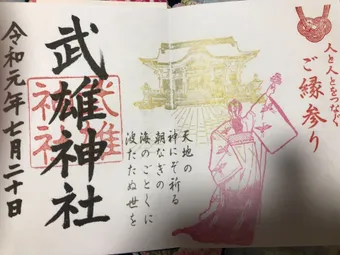 人と人とをつなぐ
ご縁参り
天地の
神にぞ祈る
朝なぎの
海のごとくに
波たたぬ世を
武雄神社
武雄
神社
令和元年七月二十日